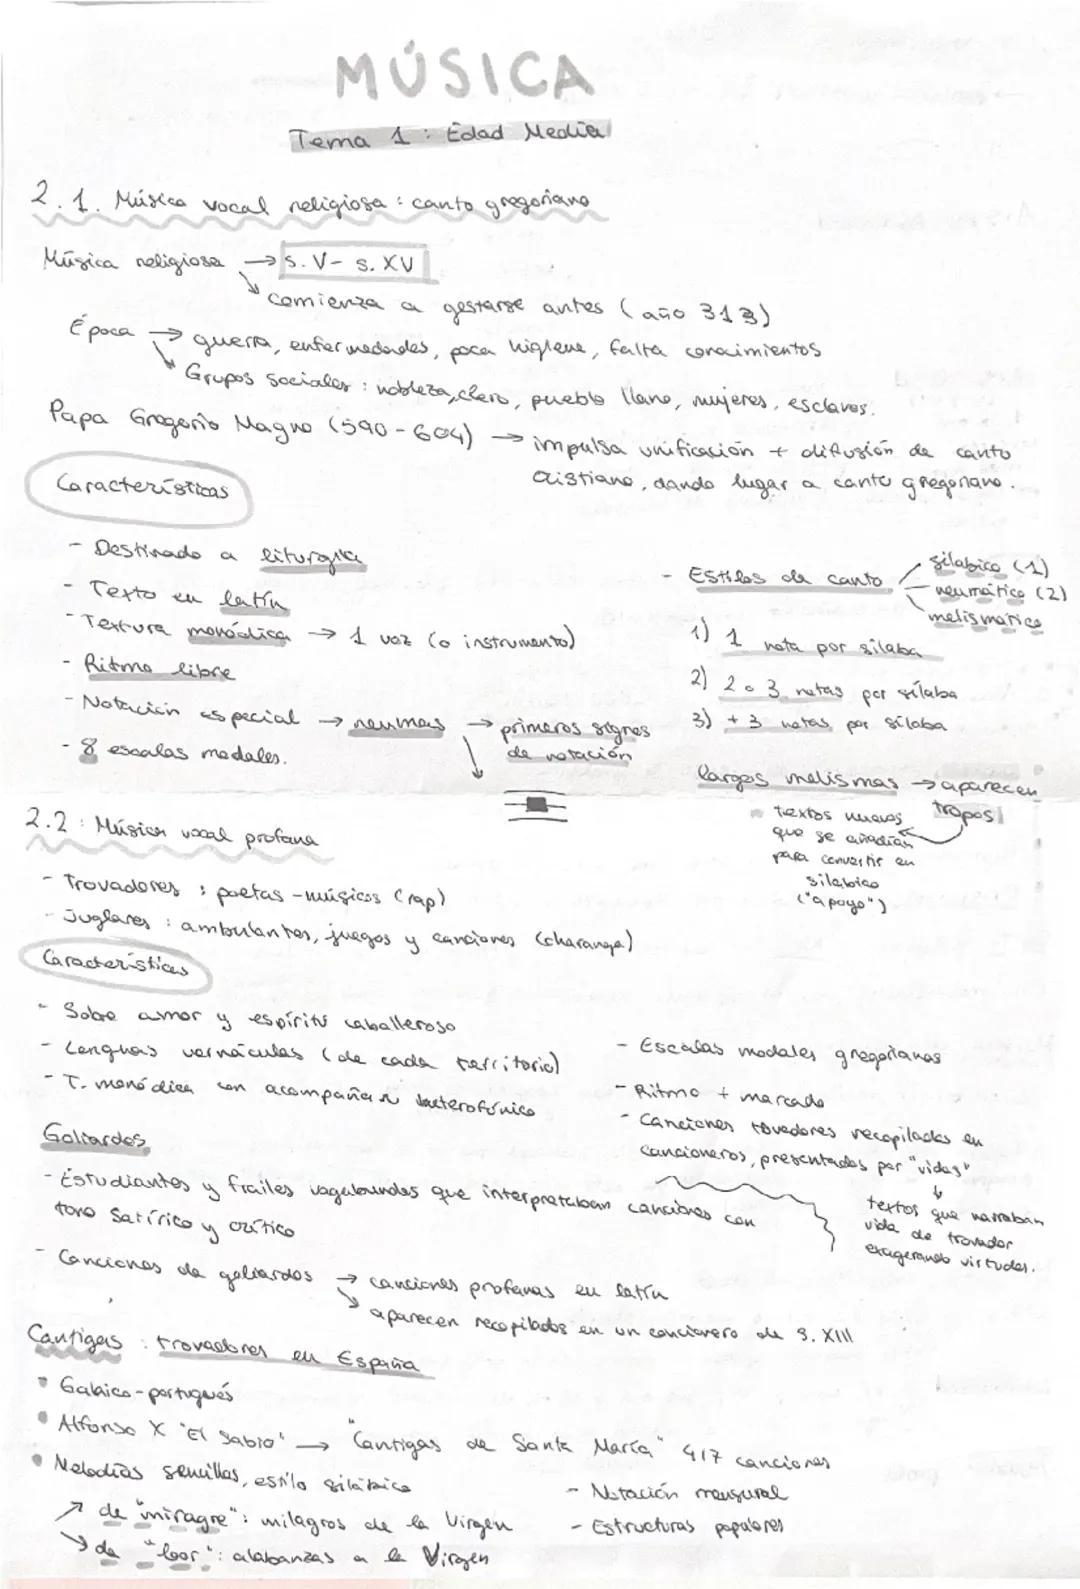 MÚSICA
Tema 1: Edad Media
2.1. Música vocal religiosa: canto gregoriano
Música religiosa → s. V - s. XV
↘ comienza a gestarse antes (año 313)
Época → guerra, enfermedades, poca higiene, falta conocimientos
↘ Grupos sociales: nobleza, clero, pueblo llano, mujeres, esclavos.
Papa Gregorio Magno (590-604) → impulsa unificación + difusión de canto
cristiano, dando lugar a canto gregoriano.
Características
- Destinado a liturgia
- Texto en latín
- Textura monódica → 1 voz (o instrumento)
- Ritmo libre
- Notación especial → neumas → primeros signos
de notación
- 8 escalas modales.
- Estilos de canto
silábico (1)
neumático (2)
melismático
1) 1 nota por sílaba
2) 2 o 3 notas por sílaba
3) + 3 notas por sílaba
largos melismas → aparecen
tropos
textos nuevos
que se añadían
para convertir en
silábico
("apoyo")
2.2: Música vocal profana
- Trovadores: poetas-músicos (rap)
- Juglares: ambulantes, juegos y canciones (charanga)
Características
- Sobre amor y espíritu caballeroso
- Lenguas vernáculas (de cada territorio)
- T. monódica con acompañam heterofónico
- Escalas modales gregorianas
- Ritmo + marcado
- Canciones tovedores recopiladas en
cancioneros, presentados por "vidas"
↓
textos que narraban
vida de trovador
exagerando virtudes.
Goliardos
- Estudiantes y frailes vagabundos que interpretaban canciones con
tono satírico y crítico
- Canciones de goliardos → canciones profanas en latín
↘ aparecen recopilados en un cancionero de s. XIII
Cantigas: trovadores en España
• Galaico-portugués
• Alfonso X "El Sabio" → "Cantigas de Santa María" 417 canciones
• Melodías sencillas, estilo silábico
- Notación mensural
- Estructuras populares
↗ de "miragre": milagros de la Virgen
↘ de "loor": alabanzas a la Virgen